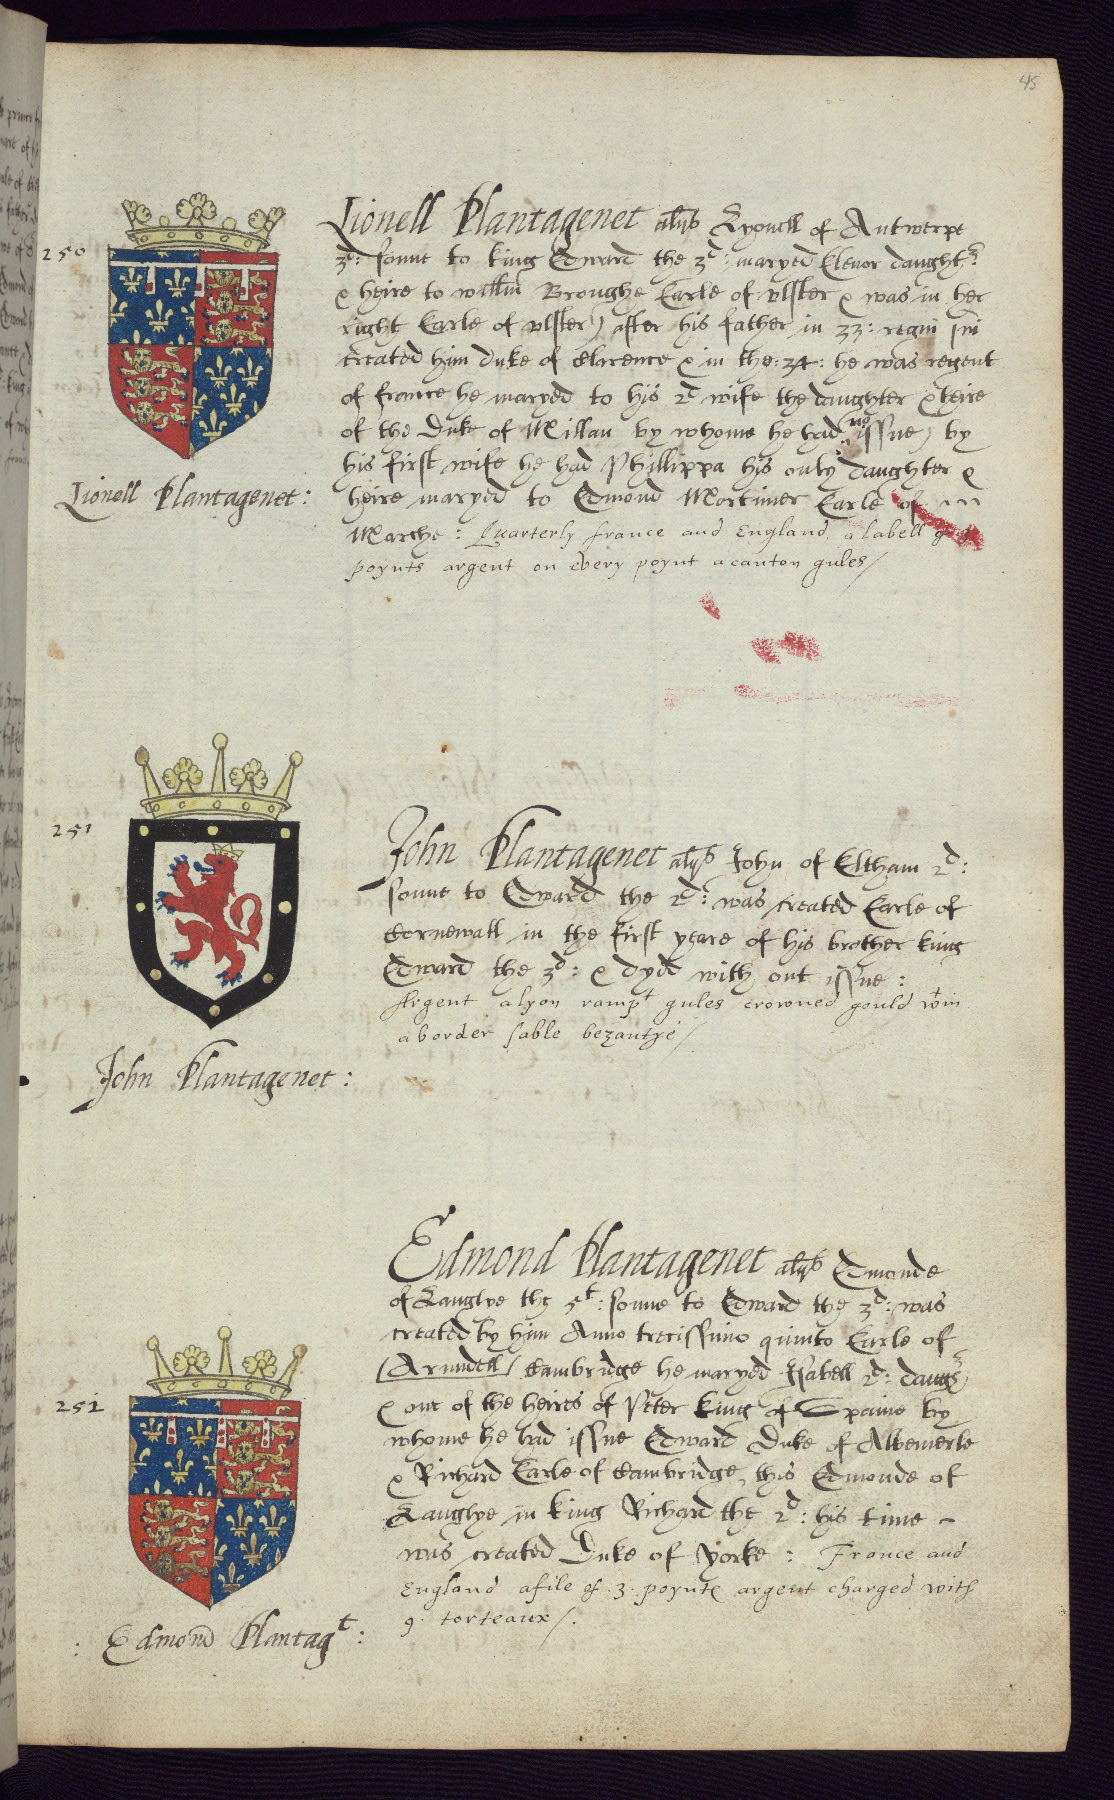 45
250
Lionell Plantagenet alijs Lyonell of Antwerpe
3d: sonne to king Edward the 3d: maryed Elenor daughtr:
& heire to willm Broughe Earle of vlster & was in her
right Earle of vlster) after his father in 33: regni sui
created him Duke of Clarence & in the: 34: he was regent
of france he maryed to his 2d wife the daughter & heire
of the Duke of Millan by whome he had no issue) by
his first wife he had Phillippa his only daughter &
heire maryed to Edmond Mortimer Earle of
Marche: Quarterly france and England, a labell of
poynts argent on every poynt a canton gules/
Lionell Plantagenet:
251
John Plantagenet alijs John of Eltham 2d:
sonne to Edward the 2d: was created Earle of
Cornewall in the first yeare of his brother king
Edward the 3d: & dyed with out issue:
Argent a lyon rampt gules crowned gould wtin
a border sable bezantye/
John Plantagenet:
Edmond Plantagenet alijs Edmonde
of Langlye the 5t: sonne to Edward the 3d: was
created by him Anno trecissimo quinto Earle of
(Arundell) Cambridge he maryed Isabell 2d: daugr
& one of the heires of Peter king of Spaine by
whome he had issue Edward Duke of Albemerle
& Richard Earle of Cambridge, this Edmonde of
Langlye in king Richard the 2d: his time -
was created Duke of Yorke: France and
England a file of .3. poynts argent charged with
9. torteaux/.
251
: Edmond Plantagt: